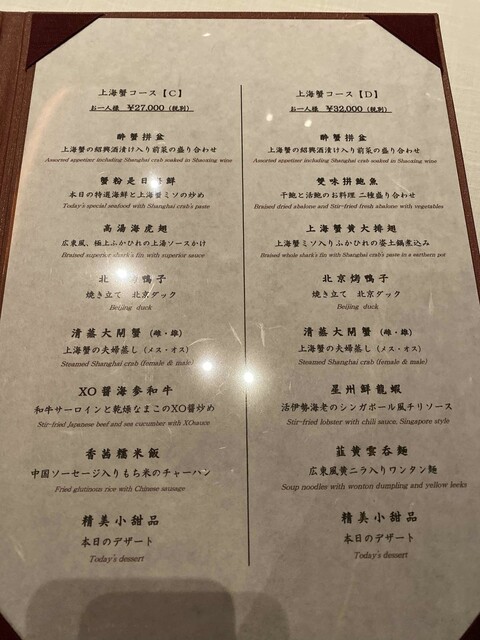 上海蟹コース【C】
お一人様 ¥27,000 (税別)
酔蟹拼盆
上海蟹の紹興酒漬け入り前菜の盛り合わせ
Assorted appetizer including Shanghai crab soaked in Shaoxing wine
蟹粉是日海鮮
本日の特選海鮮と上海蟹ミソの炒め
Today's special seafood with Shanghai crab's paste
高湯海虎翅
広東風、極上ふかひれの上湯ソースかけ
Braised superior shark's fin with superior sauce
北京烤鴨子
焼き立て 北京ダック
Beijing duck
清蒸大閘蟹 (雌・雄)
上海蟹の夫婦蒸し (メス・オス)
Steamed Shanghai crab (female & male)
XO醤海参和牛
和牛サーロインと乾燥なまこのXO醤炒め
Stir-fried Japanese beef and sea cucumber with XO sauce
香茜糯米飯
中国ソーセージ入りもち米のチャーハン
Fried glutinous rice with Chinese sausage
精美小甜品
本日のデザート
Today's dessert
上海蟹コース【D】
お一人様 ¥32,000 (税別)
酔蟹拼盆
上海蟹の紹興酒漬け入り前菜の盛り合わせ
Assorted appetizer including Shanghai crab soaked in Shaoxing wine
雙味拼鮑魚
干鮑と活鮑のお料理 二種盛り合わせ
Braised dried abalone and Stir-fried fresh abalone with vegetables
上海蟹黄大排翅
上海蟹ミソ入りふかひれの姿土鍋煮込み
Braised whole shark's fin with Shanghai crab's paste in a earthen pot
北京烤鴨子
焼き立て 北京ダック
Beijing duck
清蒸大閘蟹 (雌・雄)
上海蟹の夫婦蒸し (メス・オス)
Steamed Shanghai crab (female & male)
星州鮮龍蝦
活伊勢海老のシンガポール風チリソース
Stir-fried lobster with chili sauce, Singapore style
韮黄雲呑麺
広東風黄ニラ入りワンタン麺
Soup noodles with wonton dumpling and yellow leeks
精美小甜品
本日のデザート
Today's dessert